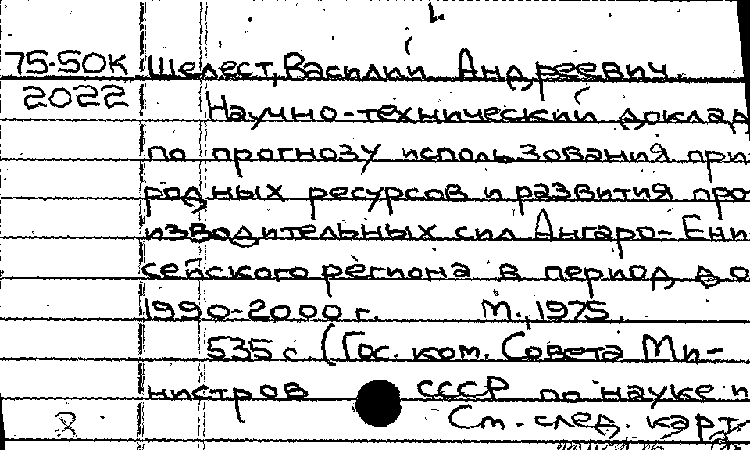 75-50К Шелест, Василий Андреевич.
2022 Научно-технический доклад
по прогнозу использования при
родных ресурсов и развития про
изводительных сил Ангаро-Ени
сейского региона в период до
1990-2000 г. М., 1975.
535 с. (Гос. ком. Совета Ми-
нистров СССР по науке и
См. след. карт